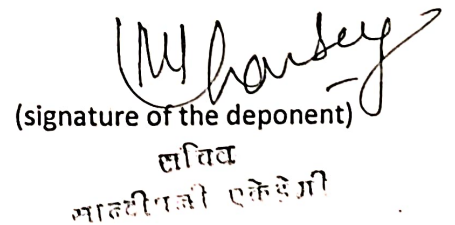 (signature of the deponent)
सचिव
सान्दीपनी एकेडेमी